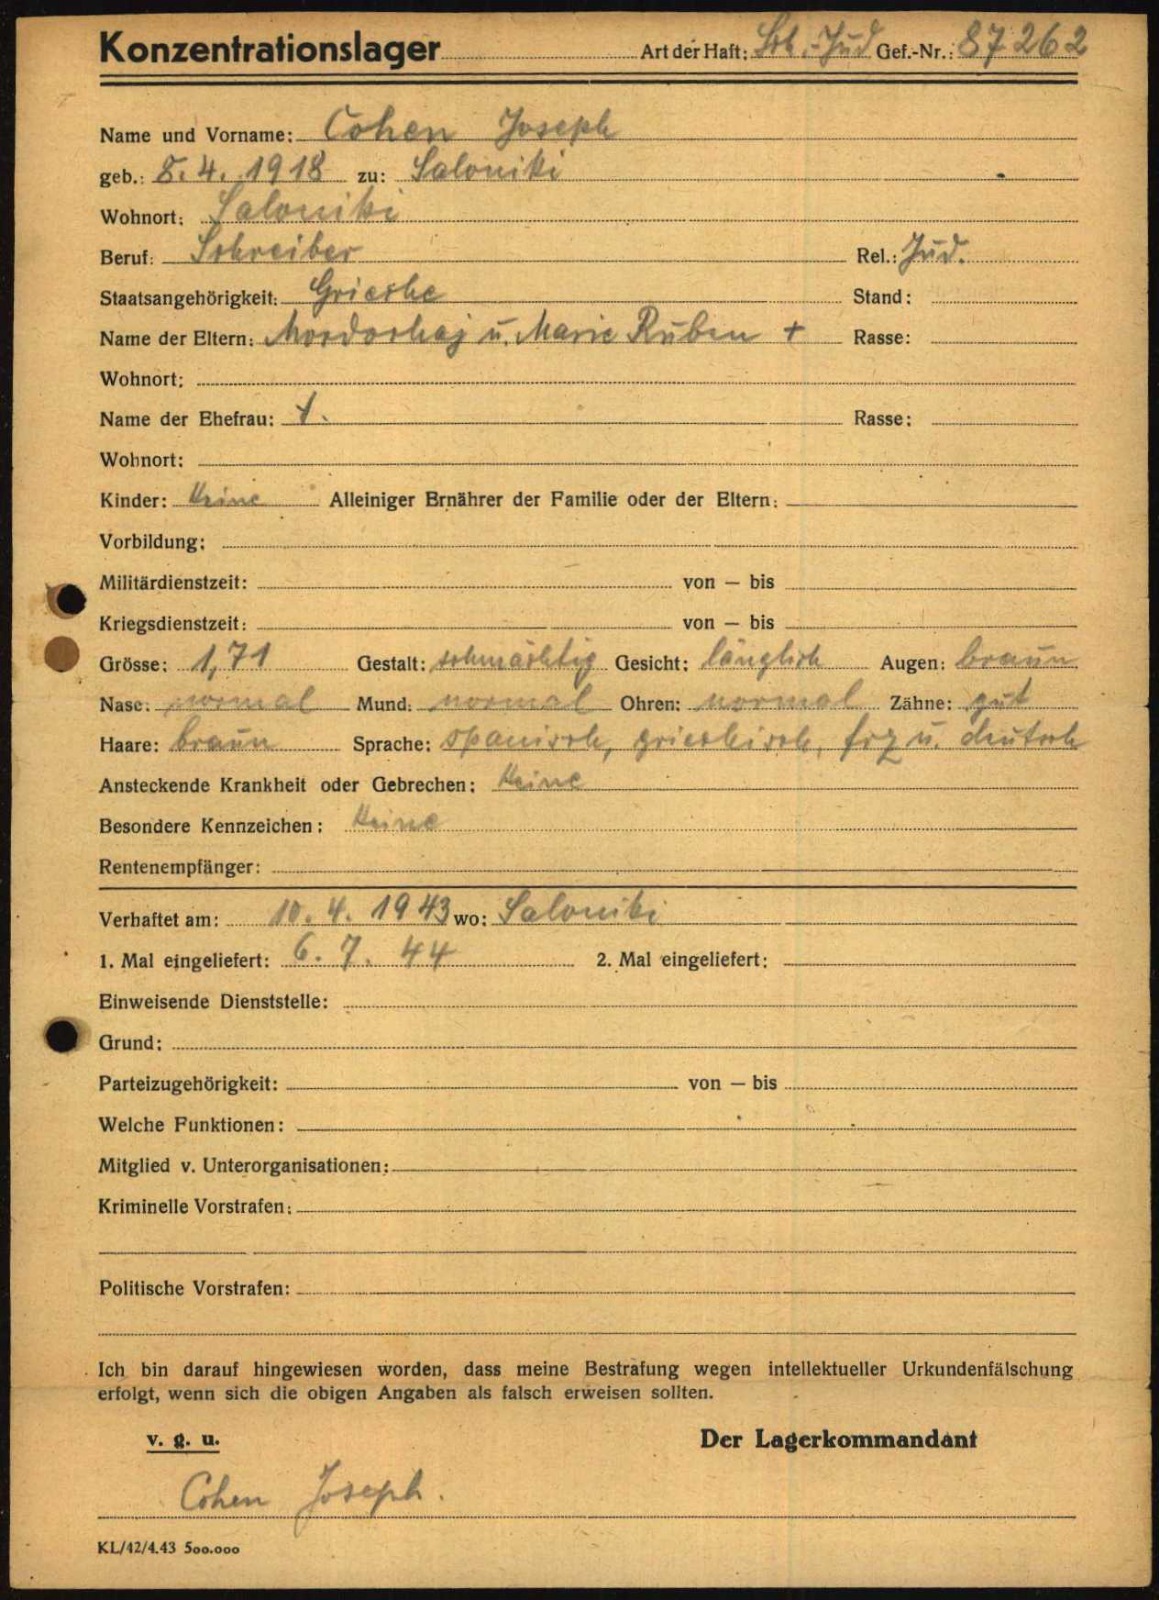 Konzentrationslager Art der Haft: Sch.-Jud Gef.-Nr.: 87262
Name und Vorname: Cohen Joseph
geb.: 8.4.1918 zu: Saloniki
Wohnort: Saloniki
Beruf: Schreiber Rel.: Jüd.
Staatsangehörigkeit: Grieche Stand:
Name der Eltern: Mordochaj u. Marie Ruben + Rasse:
Wohnort:
Name der Ehefrau: Rasse:
Wohnort:
Kinder: Keine Alleiniger Ernährer der Familie oder der Eltern:
Vorbildung:
Militärdienstzeit: von — bis
Kriegsdienstzeit: von — bis
Grösse: 1,71 Gestalt: schmächtig Gesicht: länglich Augen: braun
Nase: normal Mund: normal Ohren: normal Zähne: gut
Haare: braun Sprache: spanisch, griechisch, frz u. deutsch
Ansteckende Krankheit oder Gebrechen: Keine
Besondere Kennzeichen: Keine
Rentenempfänger:
Verhaftet am: 10.4.1943 wo: Saloniki
1. Mal eingeliefert: 6.7.44 2. Mal eingeliefert:
Einweisende Dienststelle:
Grund:
Parteizugehörigkeit: von — bis
Welche Funktionen:
Mitglied v. Unterorganisationen:
Kriminelle Vorstrafen:
Politische Vorstrafen:
Ich bin darauf hingewiesen worden, dass meine Bestrafung wegen intellektueller Urkundenfälschung
erfolgt, wenn sich die obigen Angaben als falsch erweisen sollten.
v. g. u. Der Lagerkommandant
Cohen Joseph.
KL/42/4.43 500.000